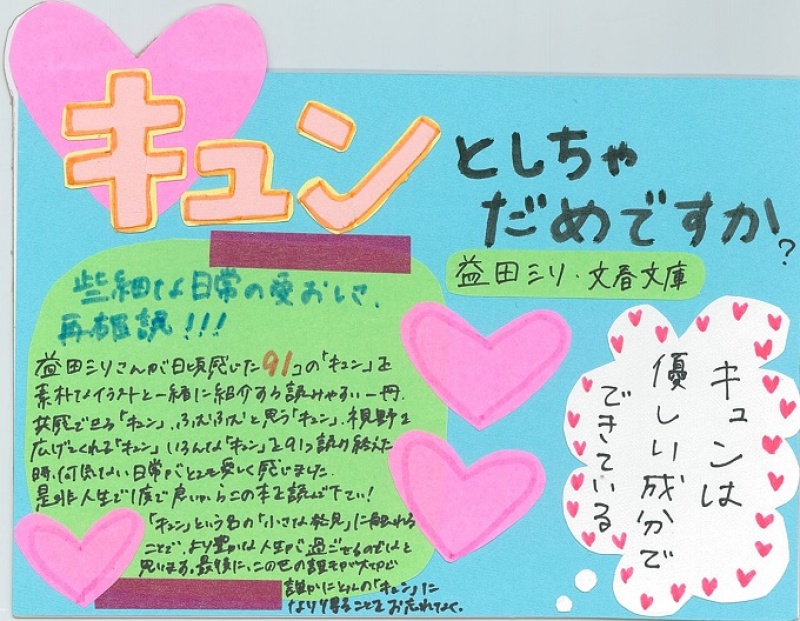 キュン
としちゃ
だめですか?
益田ミリ・文春文庫
些細な日常の愛おしさ、
再確認!!!
益田ミリさんが日頃感じた91コの「キュン」を
素朴なイラストと一緒に紹介する読みやすい一冊。
共感できる「キュン」、ふむふむと思う「キュン」、視野を
広げてくれる「キュン」いろんな「キュン」を91つ読み終えた
時、何気ない日常がとても愛しく感じました。
是非人生で1度で良いからこの本を読んで下さい!
「キュン」という名の「小さな発見」に触れる
ことで、より豊かな人生が過ごせるのではと
思います。最後に、この世の誰もが大切で
誰かにとっての「キュン」に
なり得ることをお忘れなく。
キュンは
優しい成分で
できている